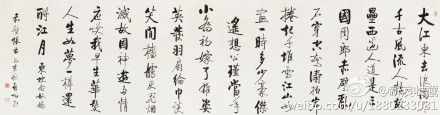 大江東去浪淘盡
千古風流人物故
壘西邊人道是三
國周郎赤壁亂
石穿空驚濤拍岸
捲起千堆雪江山如
畫一時多少豪傑
遙想公瑾當年
小喬初嫁了雄姿
英發羽扇綸巾談
笑間檣艣灰飛煙
滅故國神遊多情
應笑我早生華髮
人生如夢一樽還
酹江月 東坡念奴嬌
赤壁懷古